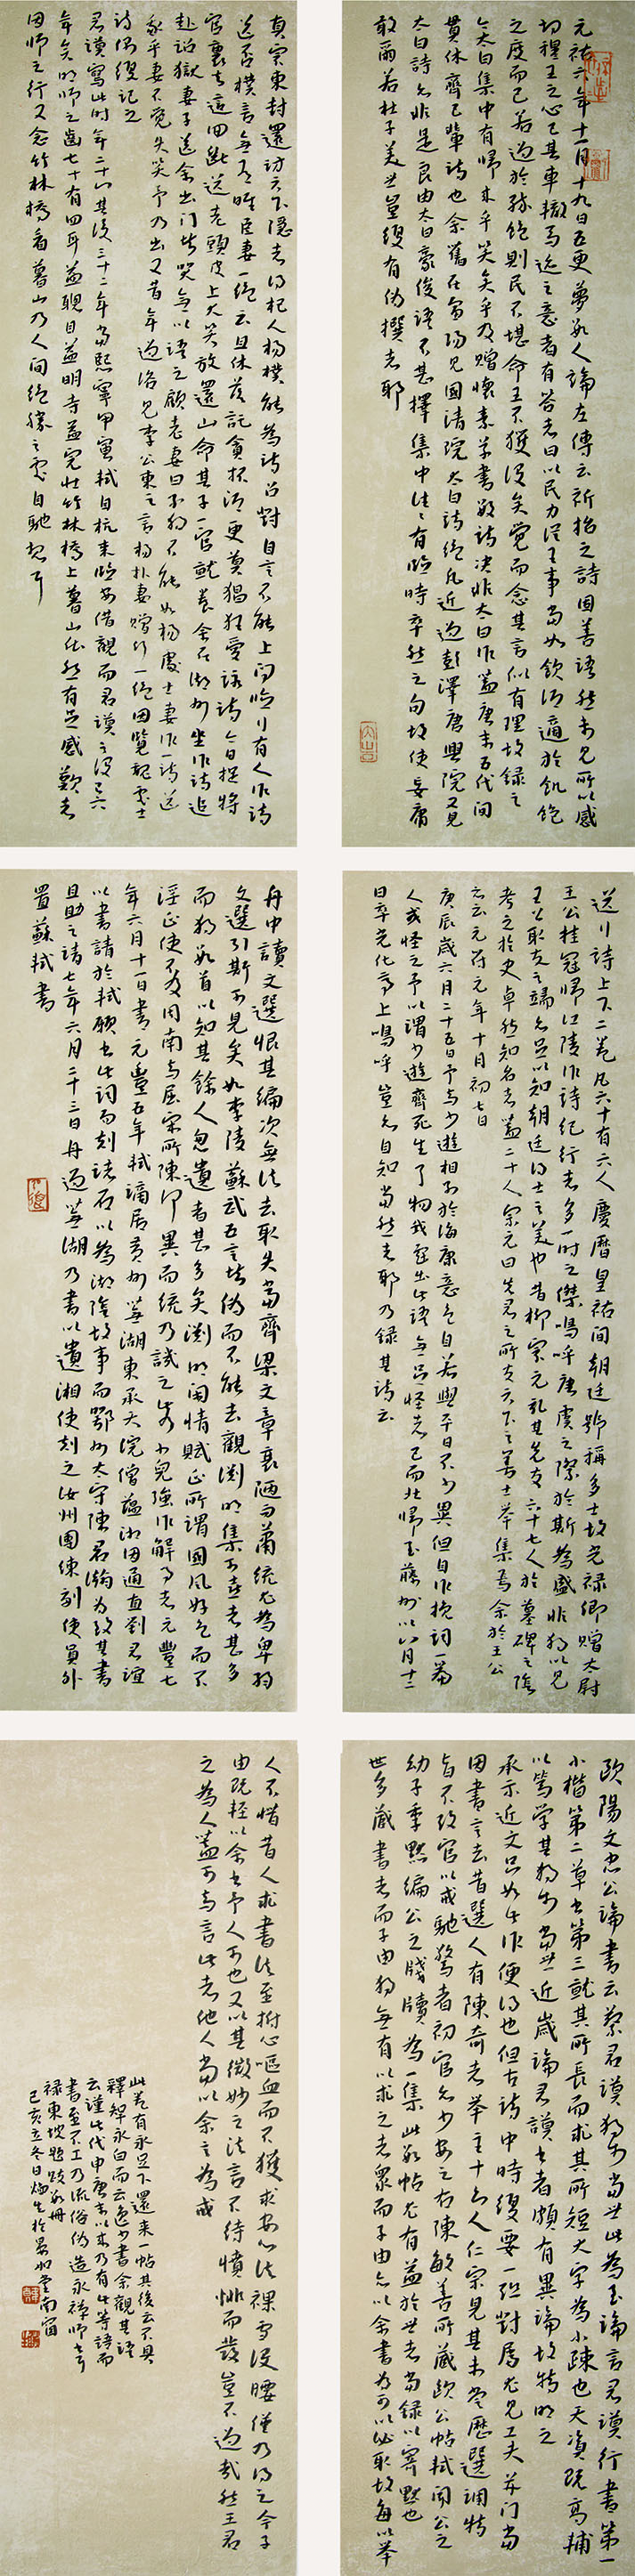 元祐六年十一月十九日五更夢數人論左傳云祈招之詩固善語然未見所以感
切穆王之心已其車轍馬迹之意者有答者曰以民力從王事當如飲酒適於飢飽
之度而已若過於醉飽則民不堪命王不獲沒矣覺而念其言似有理故錄之
今太白集中有歸來乎笑矣乎及贈懷素草書數詩決非太白作蓋唐末五代間
貫休齊己輩詩也余舊在富陽見國清院太白詩絕凡近過彭澤唐興院又見
太白詩亦非是良由太白豪俊語不甚擇集中往往有臨時率然之句故使妄庸
敢爾若杜子美世豈復有偽撰者耶
真宗東封還訪天下隱者得杞人楊樸能為詩召對自言不能上問臨行有人作詩
送否樸言無有唯臣妻一絕云且休落託貪杯酒更莫猖狂愛詠詩今日捉將
官裏去這回斷送老頭皮上大笑放還山命其子一官就養余在湖州坐作詩追
赴詔獄妻子送余出門皆哭無以語之顧老妻曰子獨不能如楊處士妻作一詩送
我乎妻不覺失笑予乃出又昔年過洛見李公柬之言楊朴妻贈行一絕因覽魏處士
詩偶復記之
君謨寫此時年二十八其後三十二年當熙寧甲寅軾自杭來臨安借觀而君謨之沒已六
年矣明師之齒七十有四耳益聰目益明寺益完壯竹林橋上暮山依然有足感歎者
因師之行又念竹林橋看暮山乃人間絕勝之處自馳想耳
送行詩上下二卷凡六十有六人慶曆皇祐間朝廷號稱多士故光祿卿贈太尉
王公挂冠歸江陵作詩紀行者多一時之傑嗚呼唐虞之際於斯為盛非獨以見
王公取友之端亦足以知朝廷得士之美也昔柳宗元記其先友六十七人於墓碑之陰
考之於史卓然知名者蓋二十人宗元曰先君之所友天下之善士舉集焉余於王公
亦云元符元年十月初七日
庚辰歲六月二十五日予與少遊相別於海康意色自若與平日不少異但自作挽詞一篇
人或怪之予以謂少遊齊死生了物我戲出此語無足怪者已而北歸至藤州以八月十二
日卒光化亭上嗚呼豈亦自知當然者耶乃錄其詩云
舟中讀文選恨其編次無法去取失當齊梁文章衰陋而蕭統尤為卑弱
文選引斯可見矣如李陵蘇武五言皆偽而不能去觀淵明集可喜者甚多
而獨取數首以知其餘人忽遺者甚多矣淵明閑情賦正所謂國風好色而不
淫正使不及周南與屈宋所陳何異而統乃譏之此乃小兒強作解事者元豐七
年六月十一日書元豐五年軾謫居黃州蕪湖東承天院僧蘊湘因通直劉君誼
以書請於軾願書此詞而刻諸石以為湖陰故事而鄂州太守陳君瀚為致其書
且助之請七年六月二十三日舟過蕪湖乃書以遺湘使刻之汝州團練副使員外
置蘇軾書
歐陽文忠公論書云蔡君謨獨步當世此為至論言君謨行書第一
小楷第二草書第三就其所長而求其所短大字為小疎也天資既高輔
以篤學其獨步當世近歲論君謨書者頗有異論故特明之
承示近文只如此作便得也但古詩中時復要一聯對屬尤見工夫井門當
因書言去昔選人有陳奇者舉主十六人仁宗見其未嘗歷選調特
旨不改官以戒馳騖者初官亦少安之右陳敏善所藏歐公帖軾聞公之
幼子季默編公之牋牘為一集此數帖尤有益於世者當錄以寄默也
世多藏書者而子由獨無有以求之者眾而子由亦以余書為可以必取故每以舉
人不惜昔人求書法至拊心嘔血而不獲求安心法裸雪沒腰僅乃得之今子
由既輕以余書予人可也又以其微妙之法言不待憤悱而發豈不過哉然王君
之為人蓋可與言此者他人當以余言為戒
此卷有永足下還來一帖其後云不具
釋智永白而云逸少書余觀其語
云謹此代申唐末以來乃有此等語而
書至不工乃流俗偽造永禪師書耳
祿東坡題跋數冊
己亥立冬日